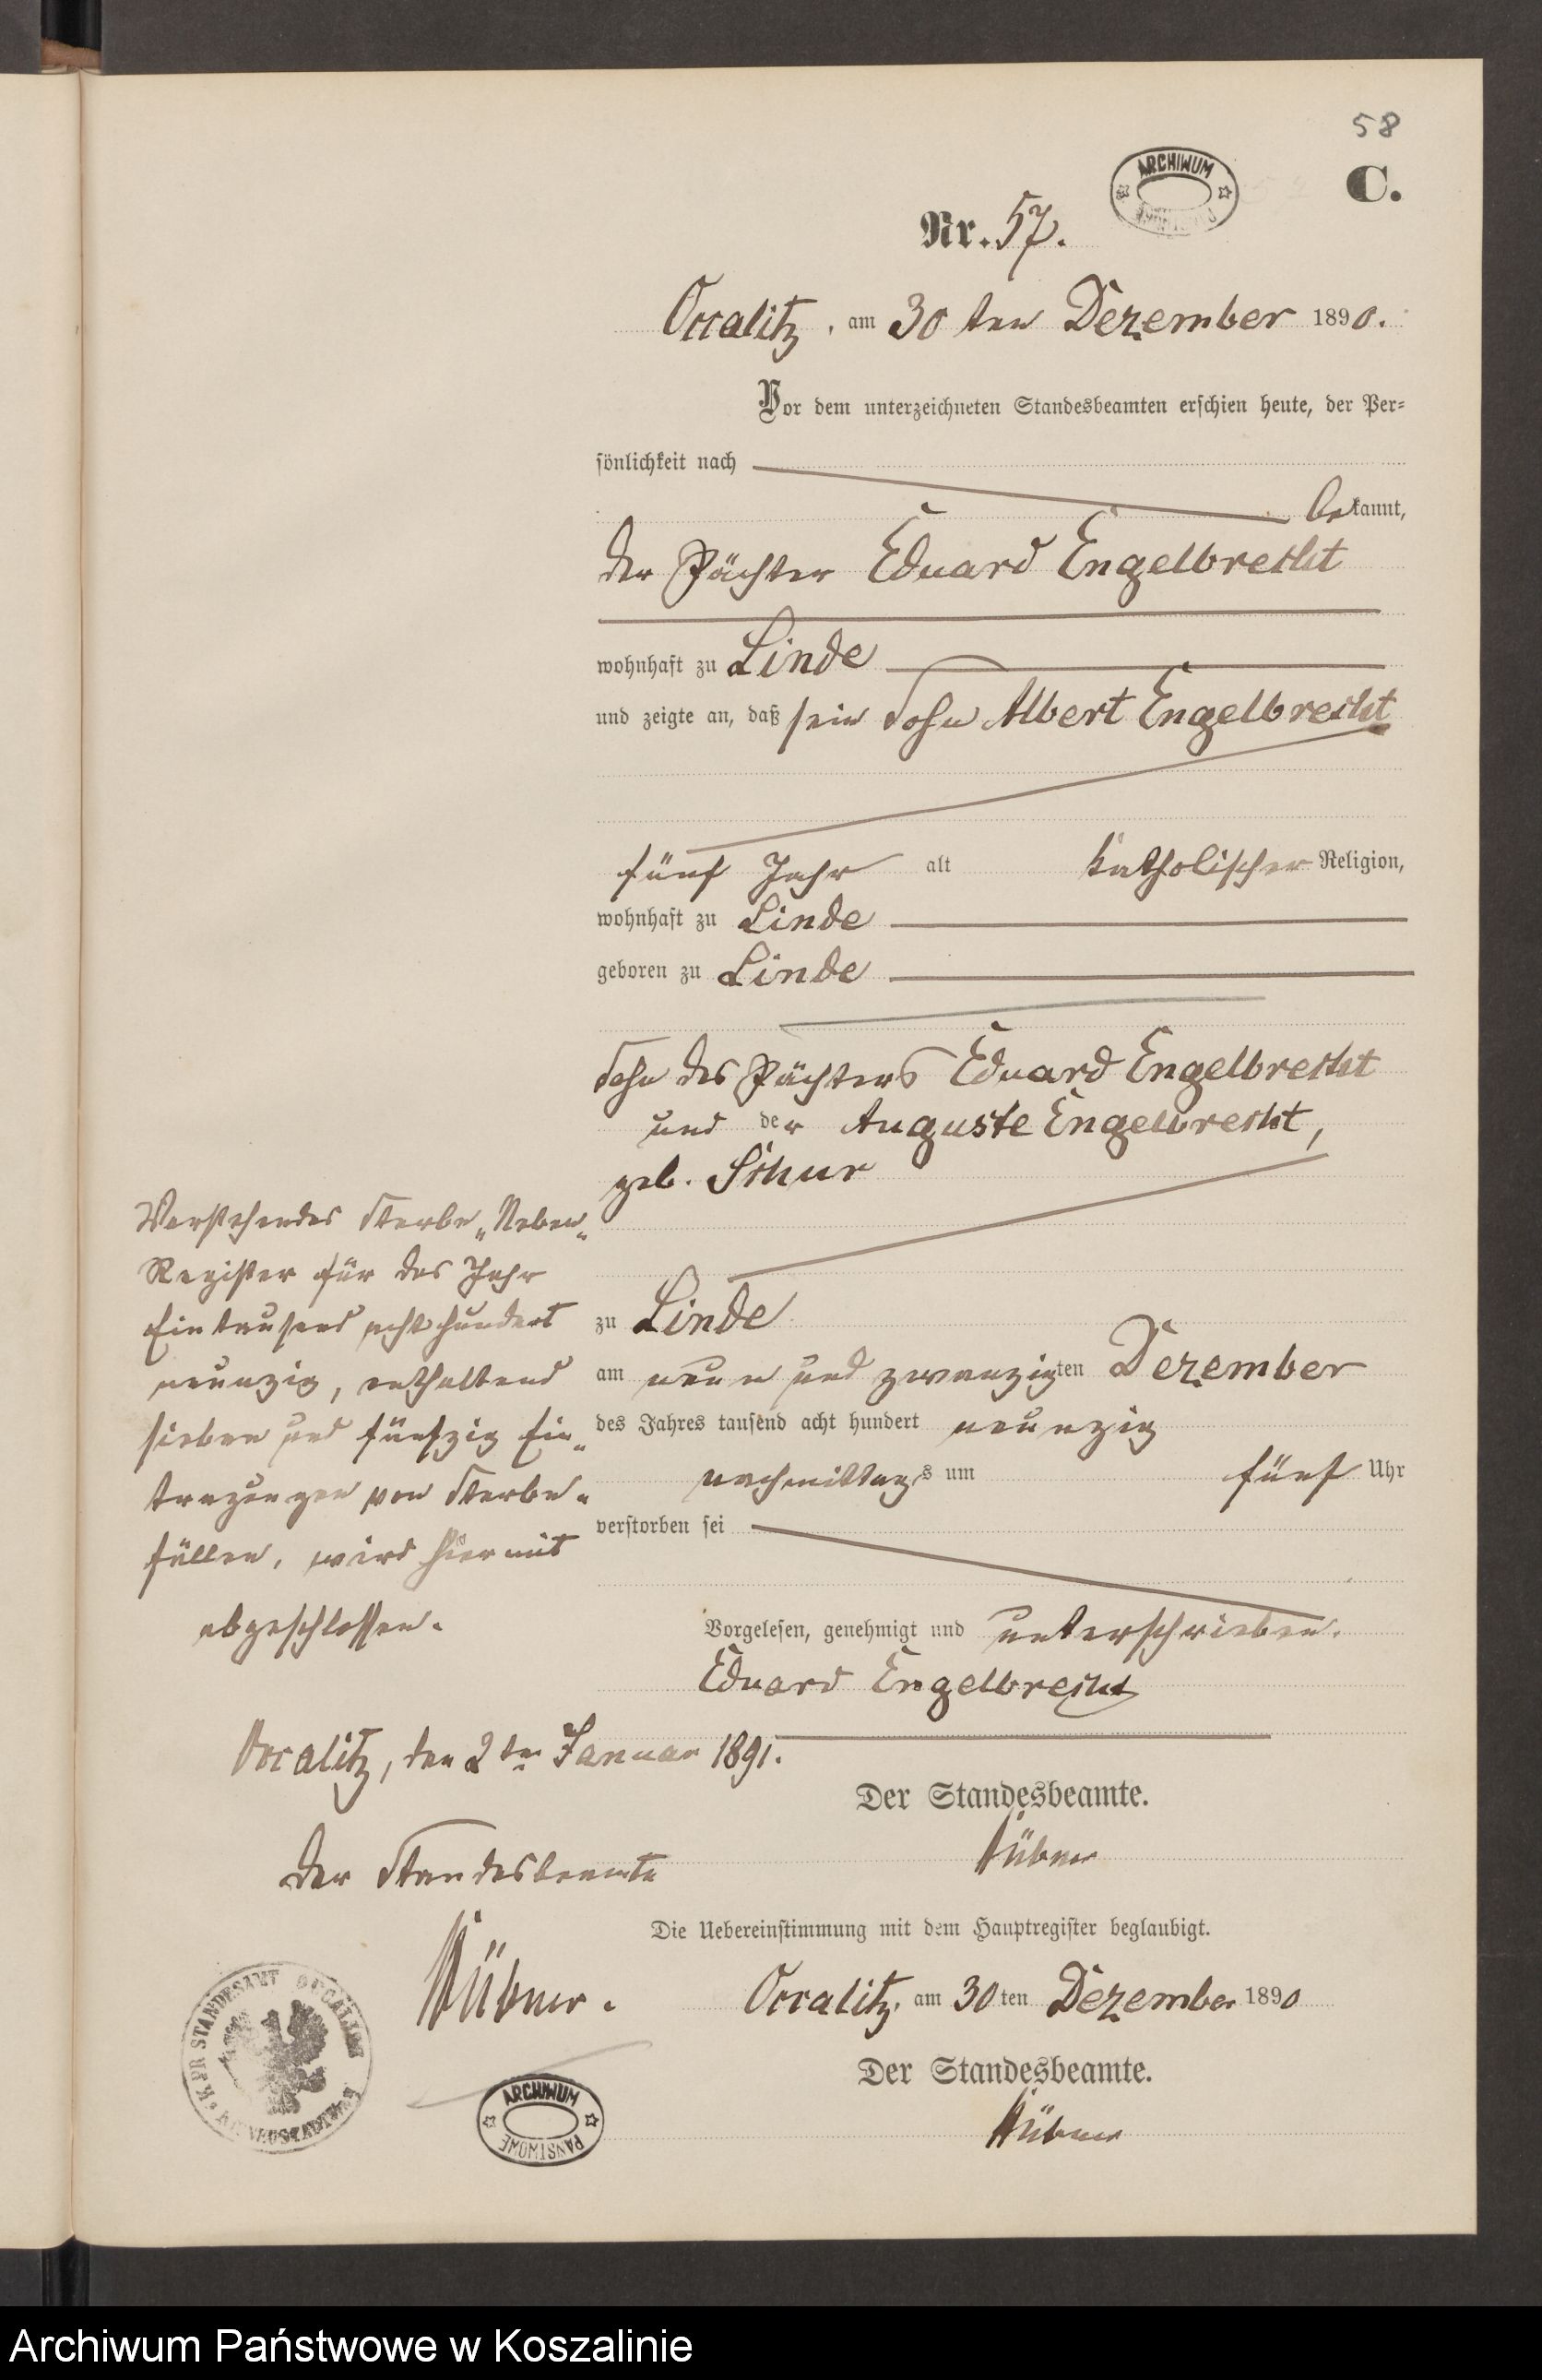 58
ARCHIWUM
C.
Nr. 57.
Occalitz, am 30 ten Dezember 1890.
Vor dem unterzeichneten Standesbeamten erschien heute, der Per=
sönlichkeit nach
bekannt,
der Pächter Eduard Engelbrecht
wohnhaft zu Linde
und zeigte an, daß sein Sohn Albert Engelbrecht
fünf Jahr alt katholischer Religion,
wohnhaft zu Linde
geboren zu Linde
Sohn des Pächters Eduard Engelbrecht
und der Auguste Engelbrecht,
geb. Schur
zu Linde
am neun und zwanzigten Dezember
des Jahres tausend acht hundert neunzig
nachmittags um fünf Uhr
verstorben sei
Vorgelesen, genehmigt und unterschrieben.
Eduard Engelbrecht
Der Standesbeamte.
Hübner
Die Uebereinstimmung mit dem Hauptregister beglaubigt.
Occalitz, am 30 ten Dezember 1890
Der Standesbeamte.
Hübner
Vorstehendes Sterbe-Neben-
Register für das Jahr
Eintausend achthundert
neunzig, enthaltend
sieben und fünfzig Ein-
tragungen von Sterbe-
fällen, wird hiermit
abgeschlossen.
Occalitz, den 2ten Januar 1891.
Der Standesbeamte
Hübner.
K. PR STANDESAMT OCCALITZ
ARCHIWUM
PAŃSTWOWE
Archiwum Państwowe w Koszalinie